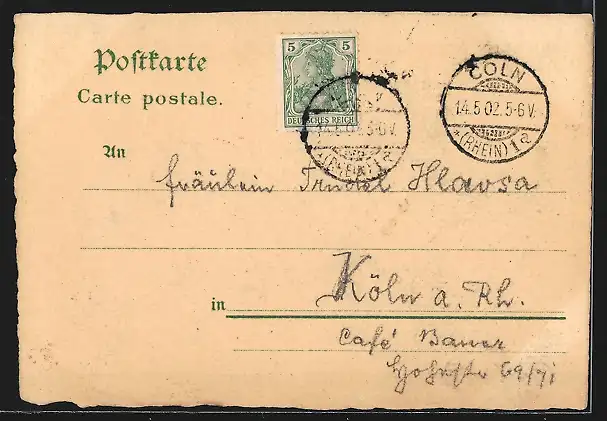 Postkarte
Carte postale.
5 5
DEUTSCHES REICH
CÖLN
14.5.02.5-6V.
*(RHEIN)1a
An
Fräulein Trudel Hlavsa
in Köln a. Rh.
Café Bauer
Hohestr 69/71